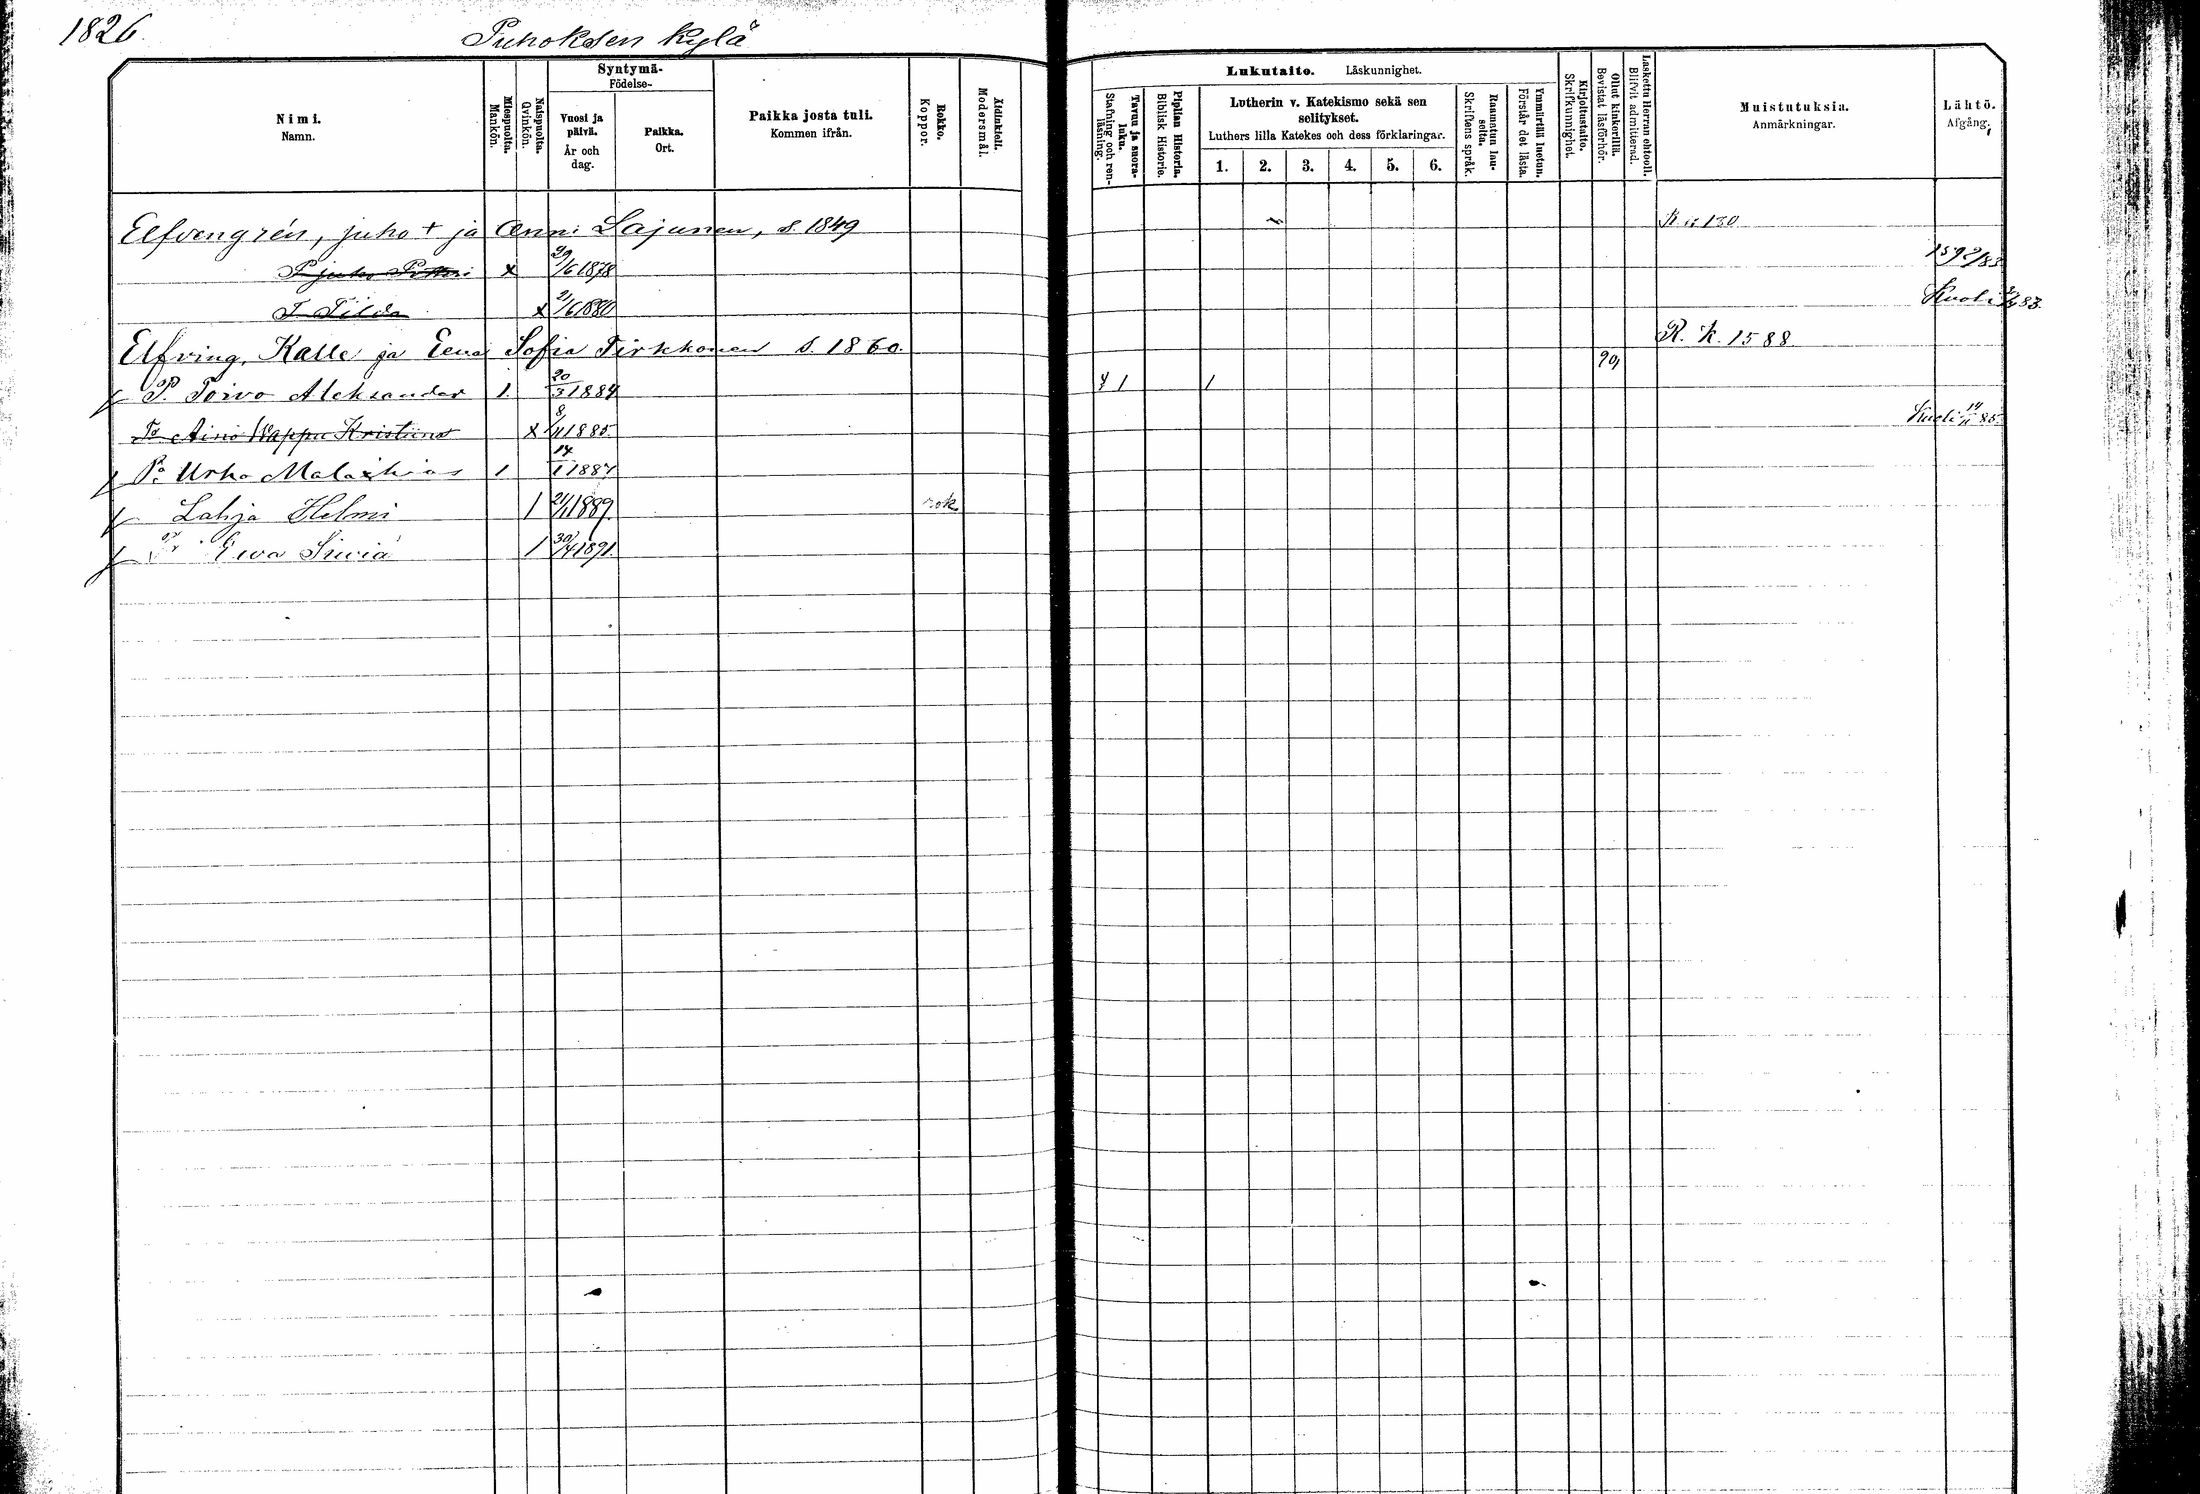 1826.
Puhoksen kylä
Nimi.
Namn.
Miespuolta.
Mankön.
Naispuolta.
Qvinkön.
Syntymä-
Födelse-
Vuosi ja päivä.
År och dag.
Paikka.
Ort.
Paikka josta tuli.
Kommen ifrån.
Rokko.
Koppor.
Äidinkieli.
Modersmål.
Lukutaito. Läskunnighet.
Tavuu ja suora-luku.
Stafning och ren-läsning.
Piplian Historia.
Biblisk Historie.
Lutherin v. Katekismo sekä sen selitykset.
Luthers lilla Katekes och dess förklaringar.
1. 2. 3. 4. 5. 6.
Raamatun lau-seita.
Skriftens språk.
Ymmärtää luetun.
Förstår det lästa.
Kirjoitustaito.
Skrifkunnighet.
Ollut kinkerillä.
Bevistat läsförhör.
Laskettu Herran ehtooll.
Blifvit admitterad.
Muistutuksia.
Anmärkningar.
Lähtö.
Afgång.
Elfvengrén, Juho + ja Anni Lajunen, s. 1849 130
P Juho Petteri x 29/6 1878 1592/83
T Tilda x 21/6 1880 Kuoli 83.
Elfving, Kalle ja Eeva Sofia Tirkkonen s. 1860. R. K. 1588
P. Toivo Aleksander 1. 20/3 1884 1 1 90,
To Aino Wappu Kristiina x 8/11 1885. Kuoli 14/11 85.
Po Urho Malakias 1 14/1 1887
Lahja Helmi 1 21/1 1889. rok.
Eeva Siviä 1 30/4 1891.